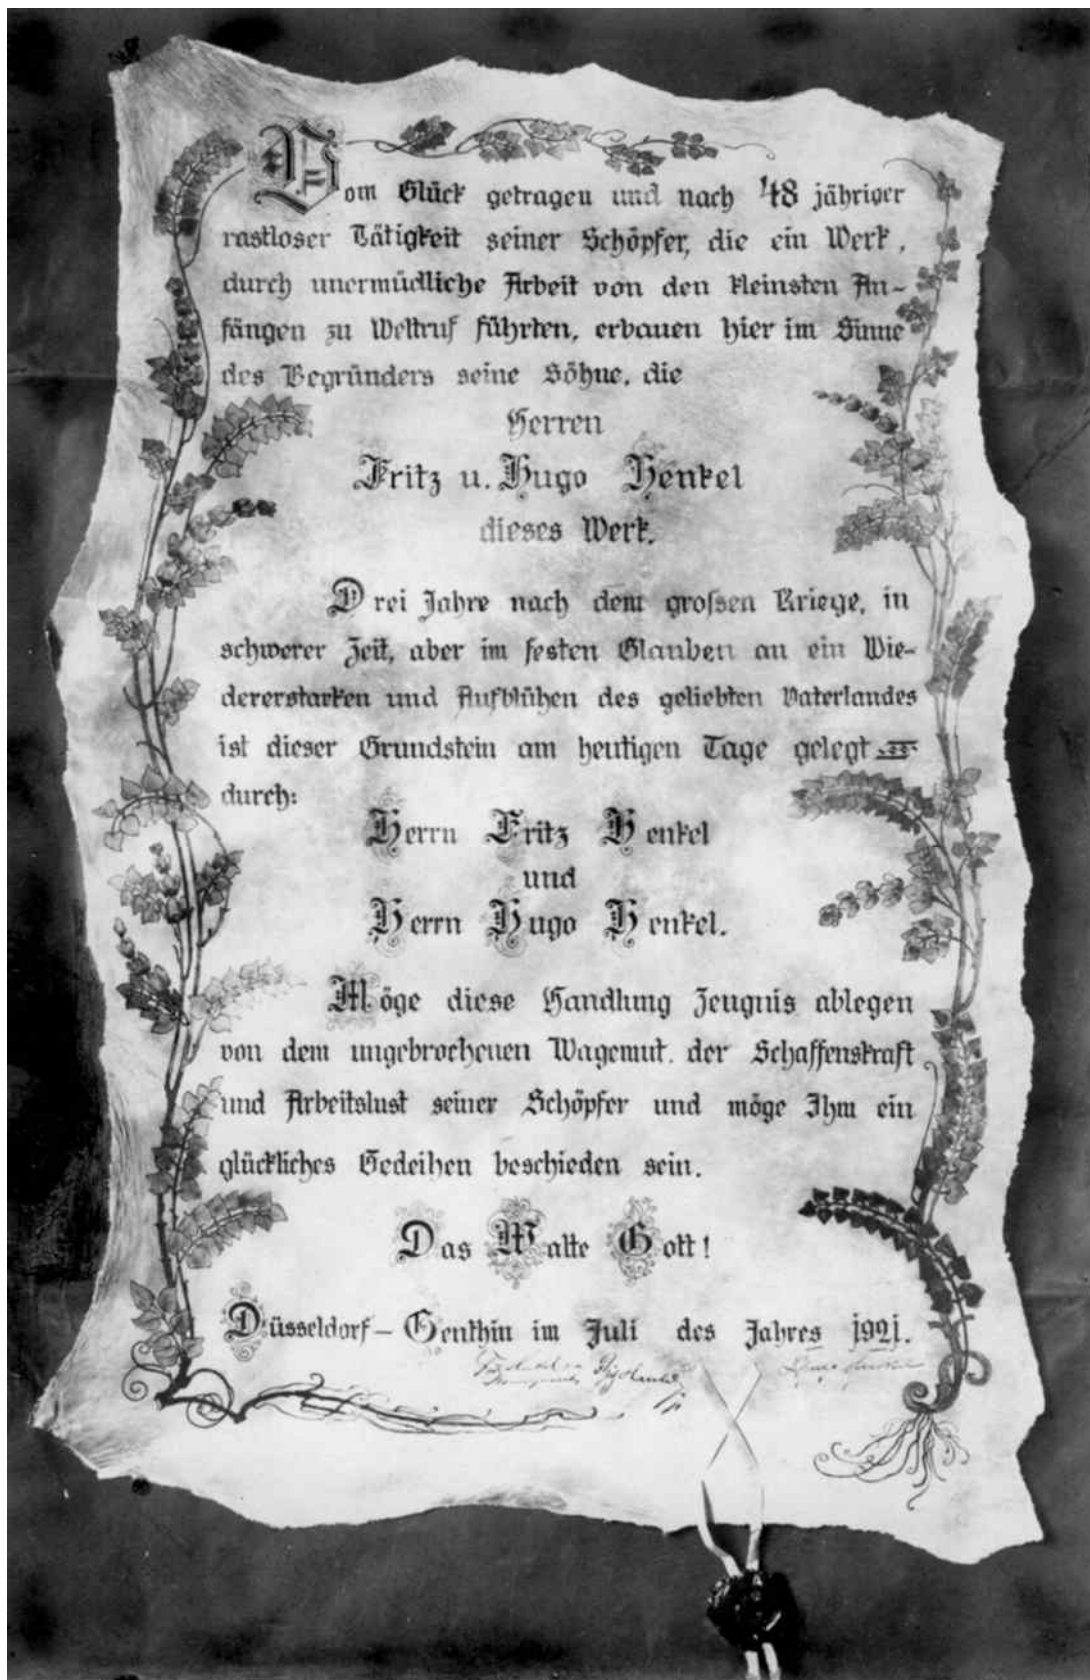 Vom Glück getragen und nach 48 jähriger
rastloser Tätigkeit seiner Schöpfer, die ein Werk,
durch unermüdliche Arbeit von den kleinsten An-
fängen zu Weltruf führten, erbauen hier im Sinne
des Begründers seine Söhne, die
Herren
Fritz u. Hugo Henkel
dieses Werk.
Drei Jahre nach dem grossen Kriege, in
schwerer Zeit, aber im festen Glauben an ein Wie-
dererstarken und Aufblühen des geliebten Vaterlandes
ist dieser Grundstein am heutigen Tage gelegt
durch:
Herrn Fritz Henkel
und
Herrn Hugo Henkel.
Möge diese Handlung Zeugnis ablegen
von dem ungebrochenen Wagemut, der Schaffenskraft
und Arbeitslust seiner Schöpfer und möge Ihm ein
glückliches Gedeihen beschieden sein.
Das Walte Gott!
Düsseldorf - Genthin im Juli des Jahres 1921.